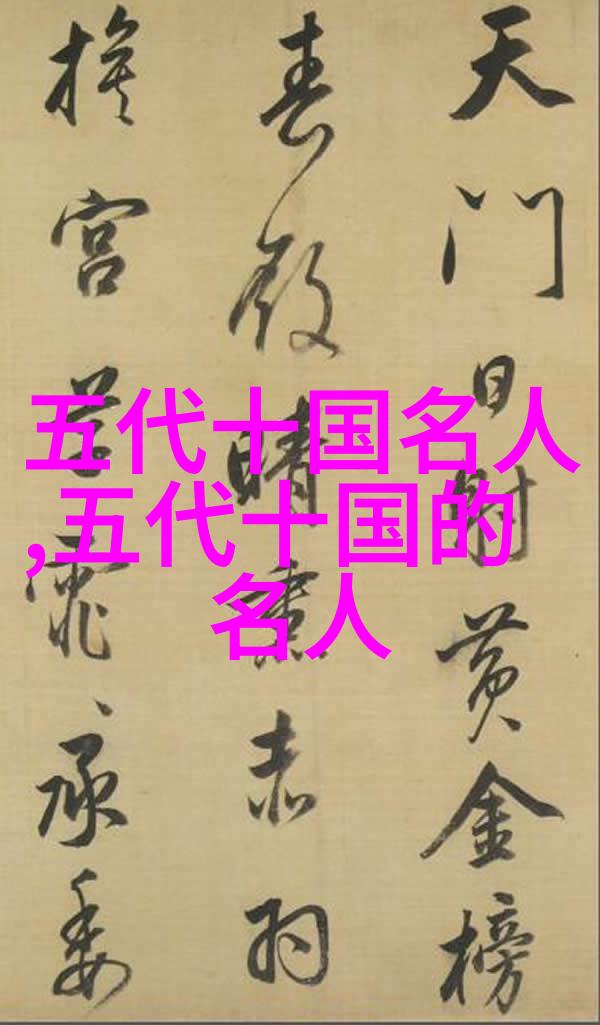 五代十国名人
,五代十国的
名人
天门日射黄金榜
春殿晴熏赤羽
旗宫草霏〻承委